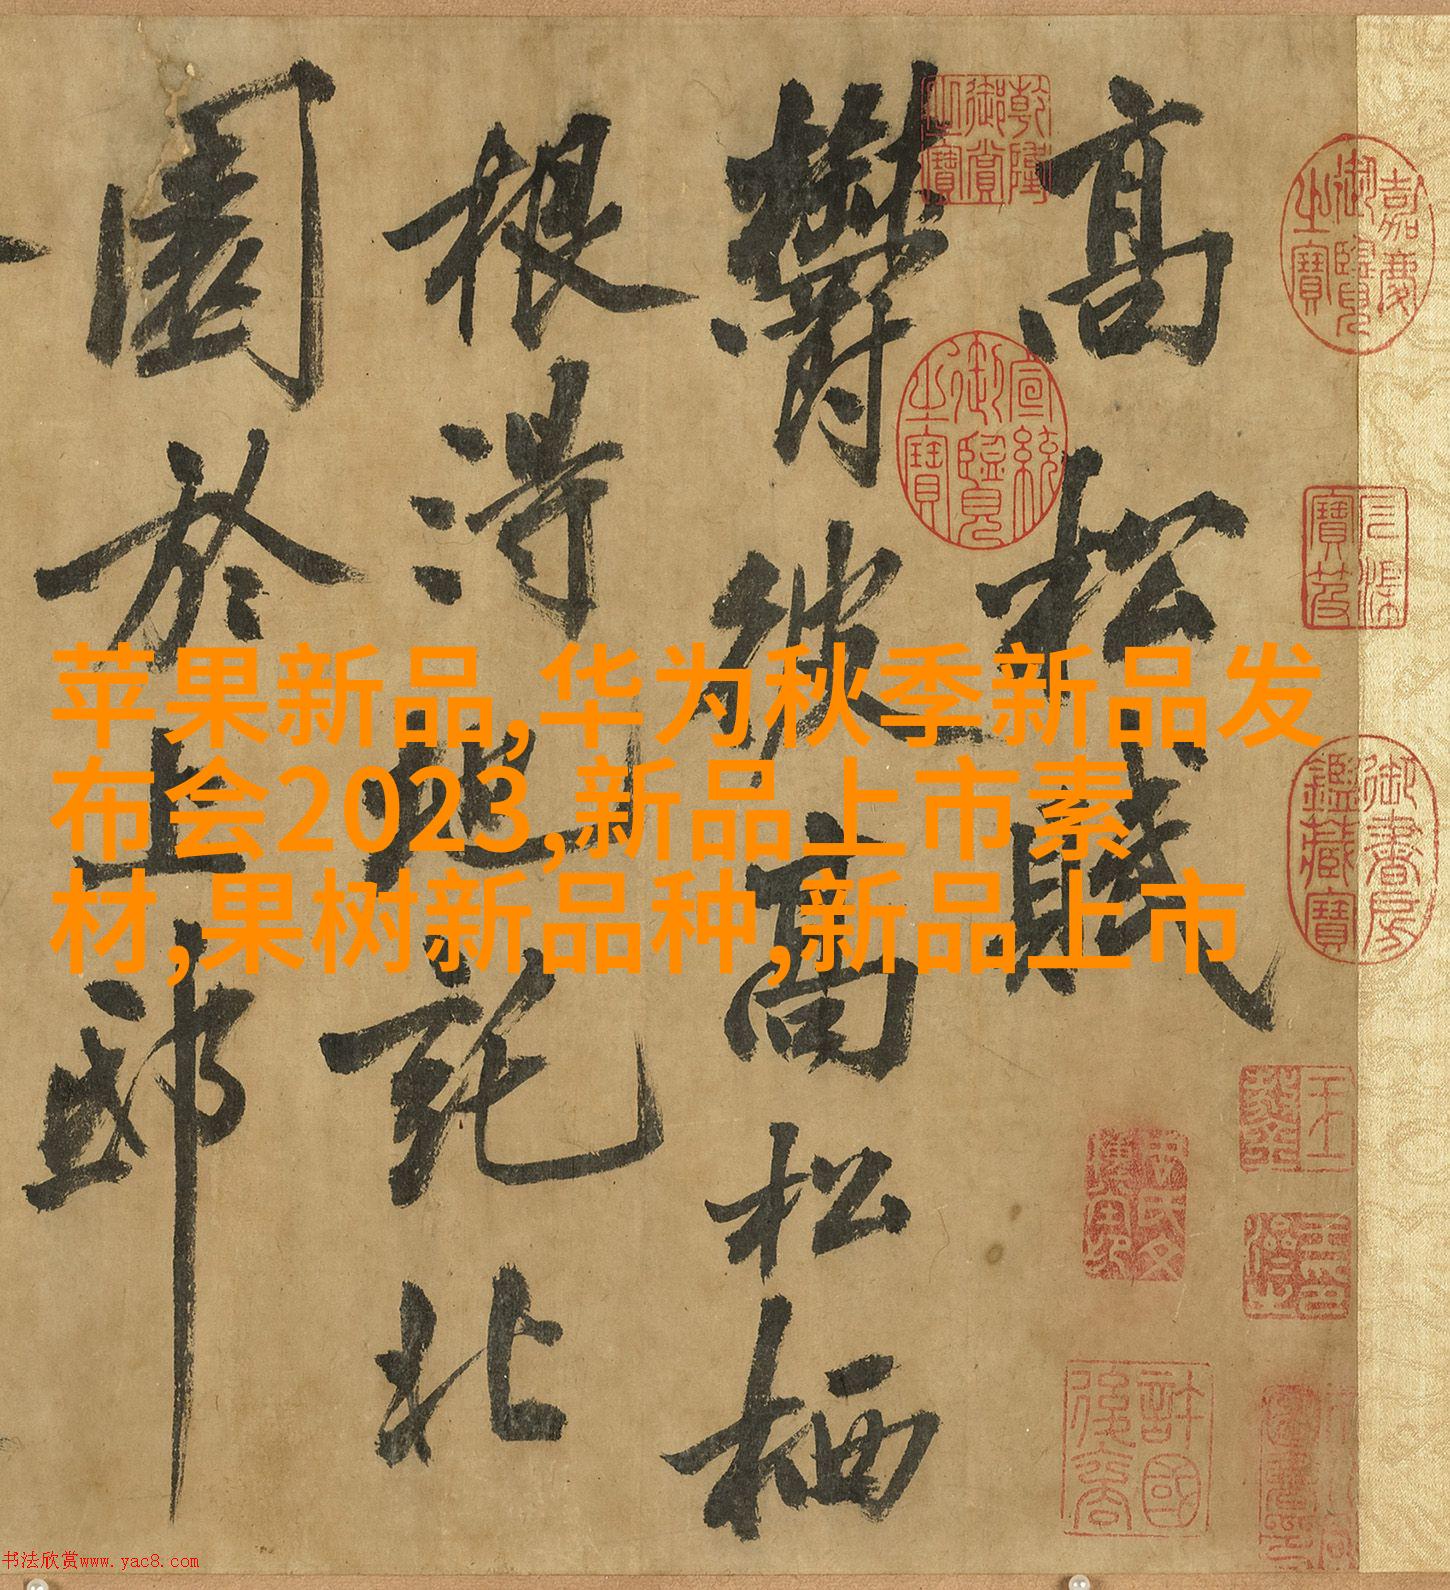 苹果新品,华为秋季新品发
布会2023,新品上市素
材,果树新品种,新品上市
高松賦
鬱彼高松栖
根得地託北
園於上邸
嘉慶御覽之寶
乾隆御賞之寶
宣統御覽之寶
石渠寶笈
御書房鑑藏寶
許國後裔
书法欣赏www.yac8.com